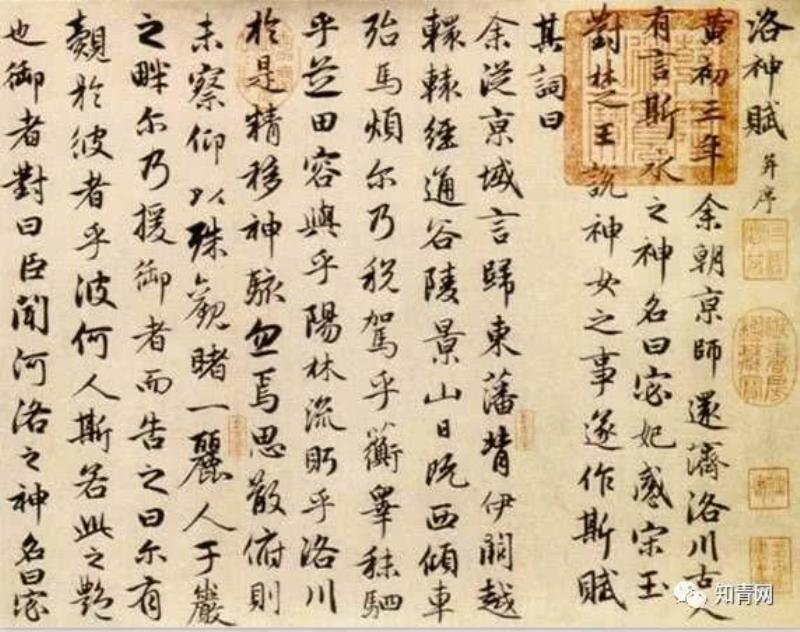 洛神賦 并序
黄初三年余朝京師還濟洛川古人
有言斯水之神名曰宓妃感宋玉
對楚王說神女之事遂作斯賦
其詞曰
余從京域言歸東藩背伊闕越
轘轅經通谷陵景山日既西傾車
殆馬煩尔乃稅駕乎蘅皋秣駟
乎芝田容與乎陽林流眄乎洛川
於是精移神駭忽焉思散俯則
未察仰以殊觀睹一麗人于巖
之畔尔乃援御者而告之曰尔有
覿於彼者乎彼何人斯若此之艷
也御者對曰臣聞河洛之神名曰宓
知青网